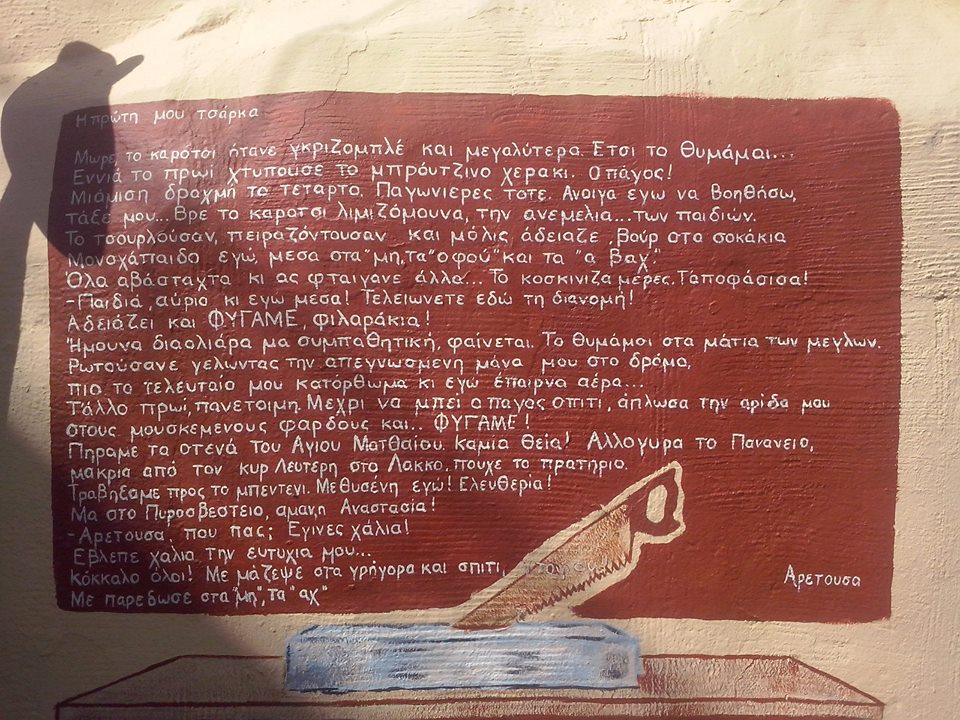 Η πρώτη μου τσάρκα
Μωρέ, το καρότσι ήτανε γκριζομπλέ και μεγαλύτερο. Έτσι το θυμάμαι...
Εννιά το πρωί χτυπούσε το μπρούτζινο χεράκι. Ο πάγος!
Μιάμιση δραχμή το τέταρτο. Παγωνιέρες τότε. Άνοιγα εγώ να βοηθήσω,
τάξε μου... Βρε το καρότσι λιμιζόμουνα, την ανεμελιά... των παιδιών.
Το τσουρλούσαν, πειραζόντουσαν και μόλις άδειαζε, βουρ στα σοκάκια
Μοναχόπαιδο εγώ, μέσα στα "μη, τα "οφού" και τα "α βαχ".
Όλα αβάσταχτα κι ας φταίγανε άλλα... Το κοσκίνιζα μέρες. Τ'αποφάσισα!
-Παιδιά, αύριο κι εγώ μέσα! Τελειώνετε εδώ τη διανομή!
Αδειάζει και ΦΥΓΑΜΕ, φιλαράκια!
Ήμουνα διαολιάρα μα συμπαθητική, φαίνεται. Το θυμάμαι στα μάτια των μεγλων.
Ρωτούσανε γελώντας την απεγνωσμένη μάνα μου στο δρόμο,
πιο το τελευταίο μου κατόρθωμα κι εγώ έπαιρνα αέρα...
Τ'άλλο πρωί, πανέτοιμη. Μέχρι να μπει ο πάγος σπίτι, άπλωσα την αρίδα μου
στους μουσκεμένους φαρδούς και.. ΦΥΓΑΜΕ!
Πήραμε τα στενά του Αγίου Ματθαίου. Καμία θεία! Αλλόγυρα το Πανάνειο,
μακριά από τον κυρ Λευτέρη στο Λάκκο. πούχε το πρατήριο.
Τραβήξαμε προς το μπεντένι. Μεθυσένη εγώ! Ελευθερία!
Μα στο Πυροσβεστείο, αμάν η Αναστασία!
-Αρετούσα, που πας; Έγινες χάλια!
Έβλεπε χάλια την ευτυχία μου...
Κόκκαλο όλοι! Με μάζεψε στα γρήγορα και σπίτι,
Με παρέδωσε στα "μη", τα "αχ"
Αρετούσα